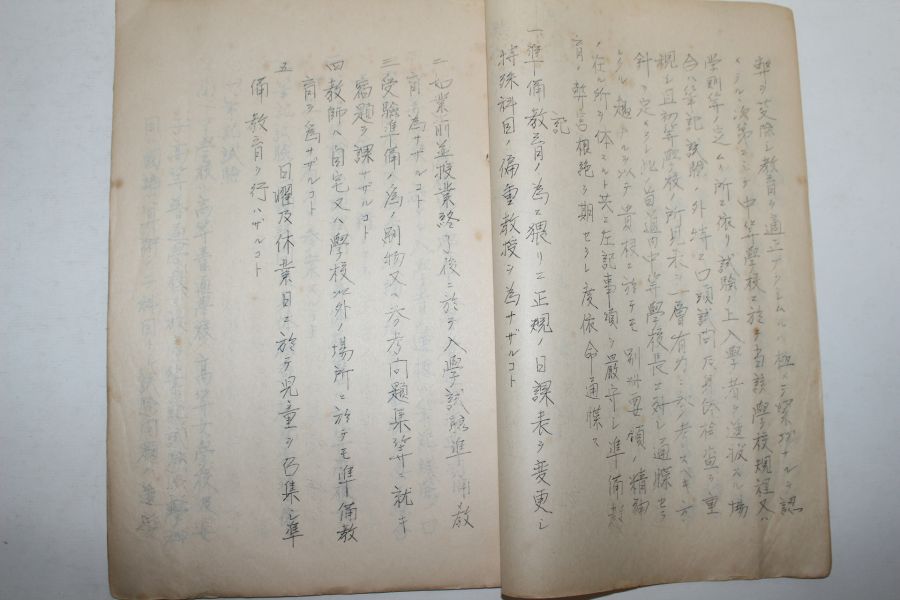 弊ヲ芟除シ教育ヲ適正ナラシムルハ極メテ緊切ナルヲ認
メラル、次第ニシテ中等學校ニ於テ当該學校規程又ハ
學則等ノ定ムル所ニ依リ試驗ノ上入學者ヲ選拔スル場
合ハ筆記試驗ノ外特ニ口頭試問及身体檢査ヲ重
視シ且初等學校ノ所見ヲ一層有力ニ参考スベキ方
針ヲ定メラレ此ノ旨道内中等學校長ニ対シ通牒セラ
レタル趣ナルヲ以テ貴校ニ於テモ別冊要領ノ精神
ノ在ル所ヲ体スルト共ニ左記事項ヲ嚴守シ準備教
育ノ弊害根絶ヲ期セラレ度依命通牒ス
記
一 準備教育ノ為ニ猥リニ正規ノ日課表ヲ変更シ
特殊科目ノ偏重教授ヲ為サザルコト
二 始業前並授業終了後ニ於テ入學試驗準備教
育ヲ為サザルコト
三 受驗準備ノ為ノ刷物又ハ参考問題集等ニ就キ
宿題ヲ課サザルコト
四 教師ハ自宅又ハ學校以外ノ場所ニ於テモ準備教
育ヲ為サザルコト
五 日曜及休業日ニ於テ児童ヲ召集シ準
備教育ヲ行ハザルコト